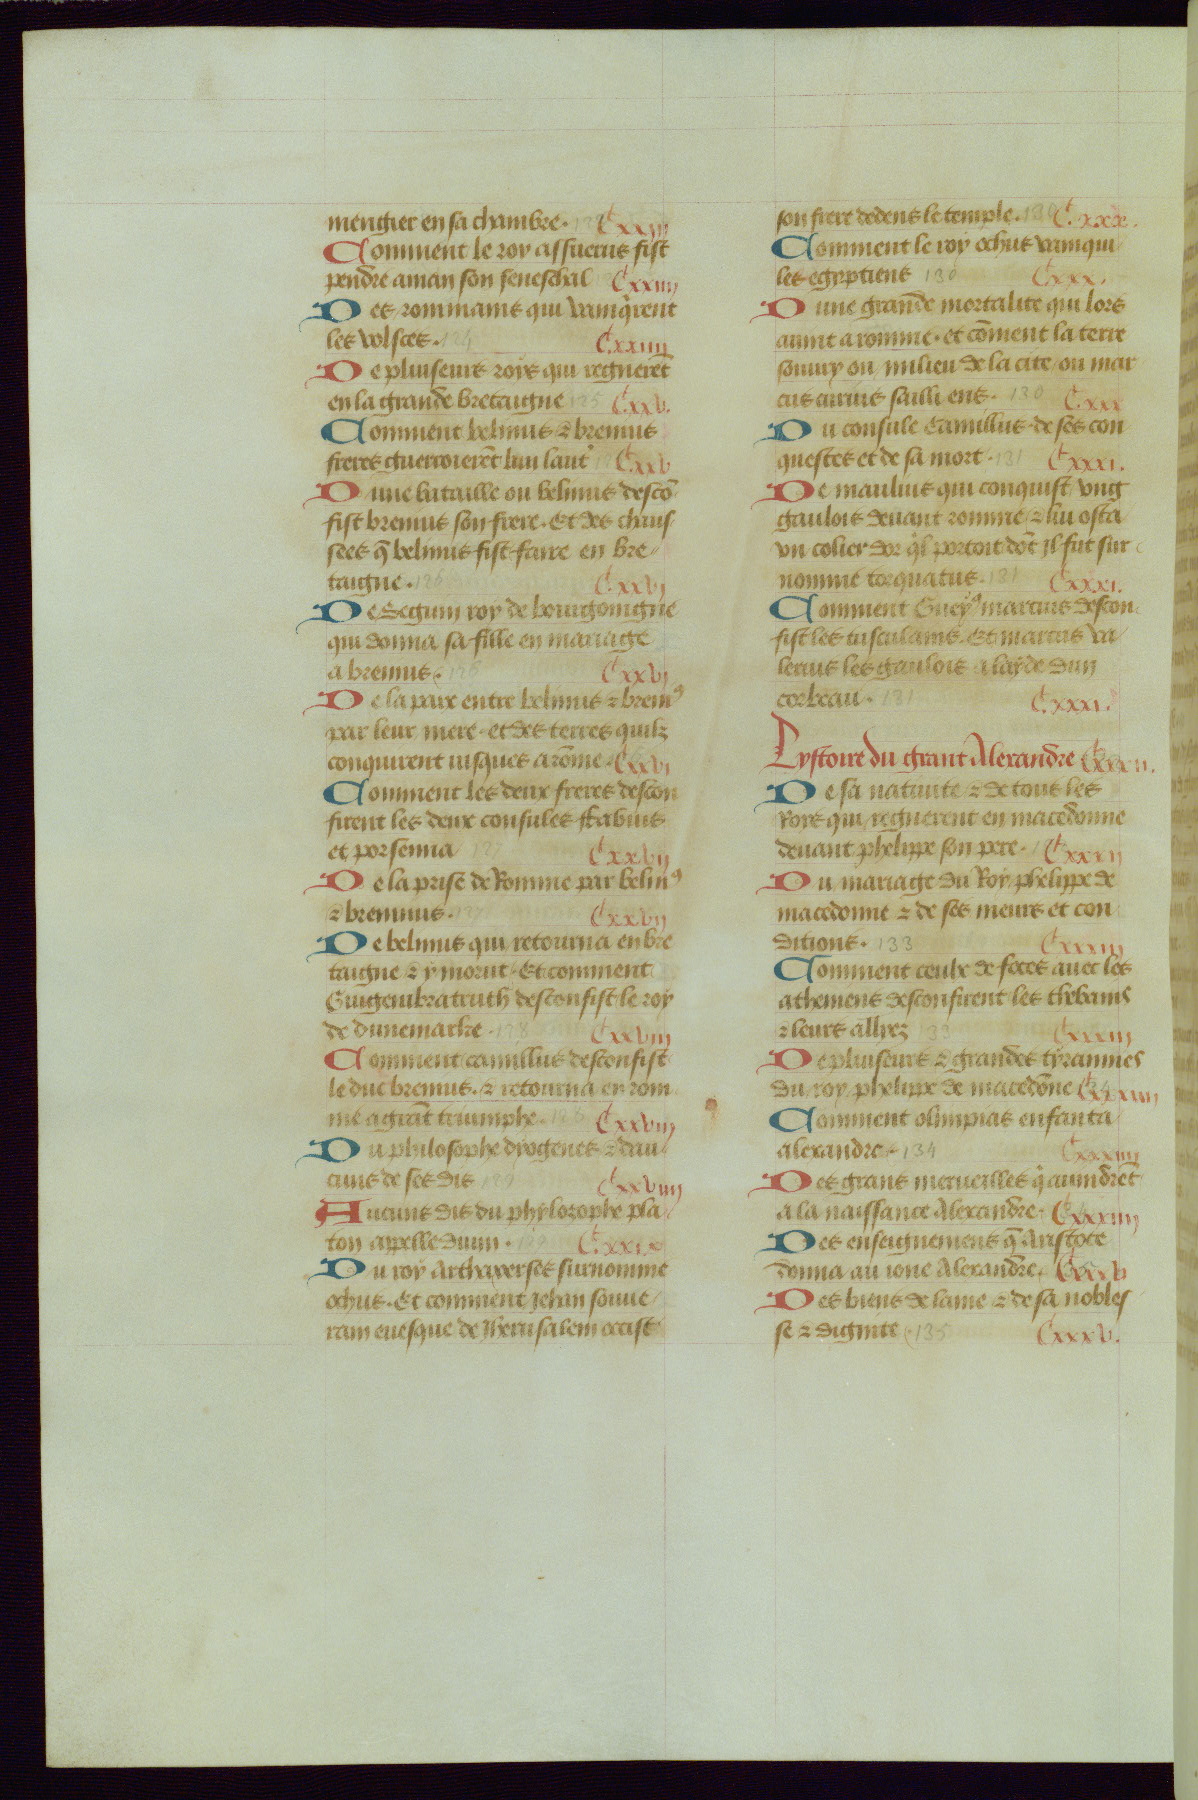 mengier en sa chambre. Cxxiij
Comment le roy assuerus fist
pendre aman son seneschal Cxxiiij
Des rommains qui vainq̃rent
les volsces. 124 Cxxiiij
De pluiseurs roys qui regnerẽt
en la grande bretaigne 125 Cxxv.
Comment belinus ⁊ brennus
freres guerroierẽt lun laut̾ Cxxv
Dune bataille ou belinus descõ
fist brennus son frere. Et des chaus
sees q̃ belinus fist faire en bre
taigne. 126 Cxxvj
De Seguin roy de bourgoingne
qui donna sa fille en mariage
a brennus. 126 Cxxvj
De la paix entre belinus ⁊ brenn⁹
par leur mere. et des terres quilz
conquirent iusques a rõme. Cxxvj
Comment les deux freres descon
firent les deux consules ffabius
et porsenna 127 Cxxvij
De la prise de Romme par belin⁹
⁊ brennus. 127 Cxxvij
De belinus qui retourna en bre
taigne ⁊ y morut. Et comment
Guigenbratruth desconfist le roy
de dunemarke. 128 Cxxviij
Comment camillus desconfist
le duc brennus. ⁊ retourna en rom
me a grãt triumphe. 128 Cxxviij
Du philosophe dyogenes ⁊ dau
cuns de ses dis 129 Cxxviiij
Aucuns dis du phylozophe pla
ton appelle diuin. 129 Cxxix
Du roy Arthaxerses surnomme
ochus. Et comment Jehan souue
rain euesque de Jherusalem occist
son frere dedens le temple. Cxxx.
Comment le roy ochus vainqui
les egyptiens 130 Cxxx.
Dune grande mortalite qui lors
auint a romme. et cõment la terre
souury ou milieu de la cite ou mar
cus curius sailli ens. 130 Cxxx
Du consule Camillus. de ses con
questes et de sa mort. 131 Cxxxi.
De maulius qui conquist vng
gaulois deuant romme ⁊ lui osta
vn colier dor q̃l portoit dõt il fut sur
nomme torquatus. 131 Cxxxi.
Comment Guey⁹ martius descon
fist les tusculains. Et marcus va
lerius les gaulois a layde dun
corbeau. 131 Cxxxi.
Lystoire du grant Alexandre Cxxxii.
De sa natiuite ⁊ de tous les
Roys qui regnerent en macedonne
deuant phelippe son pere. Cxxxij
Du mariage du Roy phelippe de
macedonne ⁊ de ses meurs et con
ditions. 133 Cxxxiij
Comment ceulx de foces auec les
atheniens desconfirent les thebains
⁊ leurs alliez 133 Cxxxiij
De pluiseurs ⁊ grandes tyrannies
du roy phelippe de macedõne Cxxxiiij
Comment olimpias enfanta
alexandre. 134 Cxxxiiij
Des grans merueilles q̃ auindrẽt
a la naissance Alexandre. Cxxxiiij
Des enseignemens q̃ Aristote
donna au ione Alexandre. Cxxxv
Des biens de lame ⁊ de sa nobles
se ⁊ dignite. 135 Cxxxv.